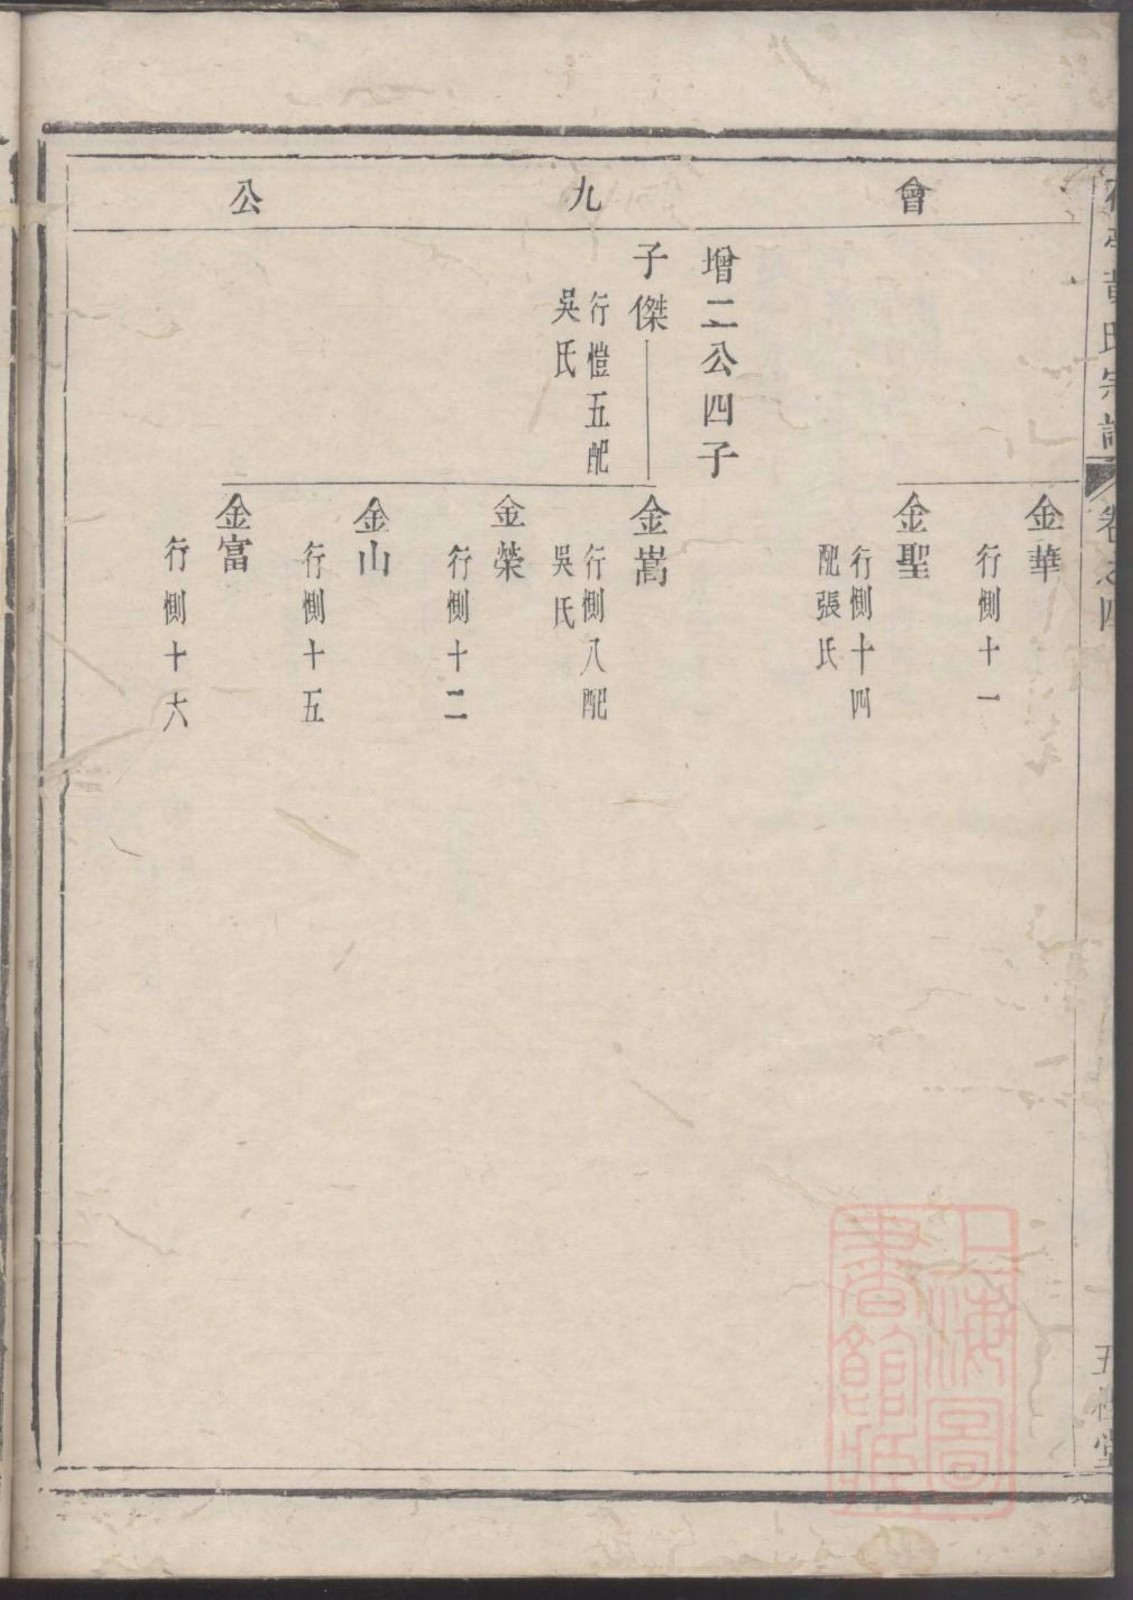 會九公
金華
行惻十一
金聖
行惻十四
配張氏
增二公四子
子傑
行愷五配
吳氏
金嵩
行惻八配
吳氏
金榮
行惻十二
金山
行惻十五
金富
行惻十六
黃氏宗譜
卷之四
上海圖
書館藏